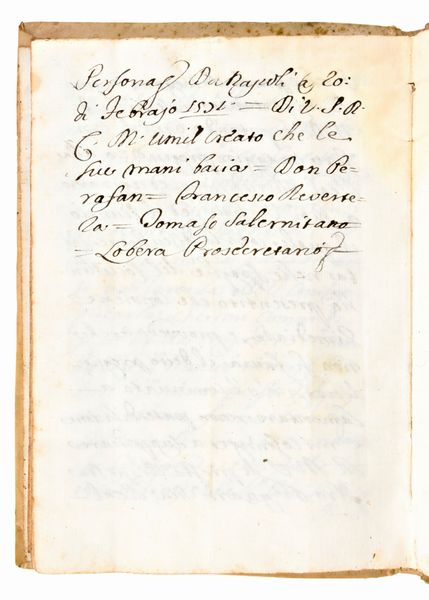 Persona= Da Napoli a 20:
di Febrajo 1571= Di V. S. R.
C. M. umil creato che le
sue mani bacia= Don Pe-
rafan= Francesco Reverte-
ra= Tomaso Salernitano
= Lobera Prosecretario=